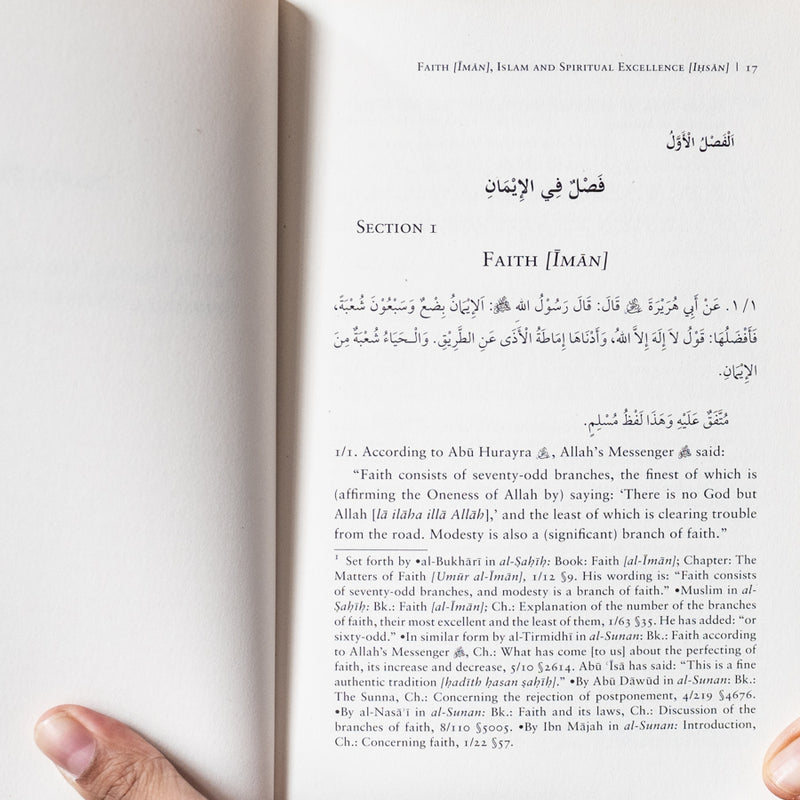 FAITH [ĪMĀN], ISLAM AND SPIRITUAL EXCELLENCE [IḤSĀN] | 17
اَلْفَصْلُ الْأَوَّلُ
فَصْلٌ فِي الإِيْمَانِ
SECTION 1
FAITH [ĪMĀN]
١/١. عَنْ أَبِي هُرَيْرَةَ ﷺ قَالَ: قَالَ رَسُوْلُ اللهِ ﷺ: اَلإِيْمَانُ بِضْعٌ وَسَبْعُوْنَ شُعْبَةً،
فَأَفْضَلُهَا: قَوْلُ لاَ إِلَهَ إِلاَّ اللهُ، وَأَدْنَاهَا إِمَاطَةُ الْأَذَى عَنِ الطَّرِيْقِ. وَالْـحَيَاءُ شُعْبَةٌ مِنَ
الإِيْمَانِ.
مُتَّفَقٌ عَلَيْهِ وَهَذَا لَفْظُ مُسْلِمٍ.
1/1. According to Abū Hurayra , Allah’s Messenger ﷺ said:
“Faith consists of seventy-odd branches, the finest of which is
(affirming the Oneness of Allah by) saying: ‘There is no God but
Allah [lā ilāha illā Allāh],’ and the least of which is clearing trouble
from the road. Modesty is also a (significant) branch of faith.”
1 Set forth by •al-Bukhārī in al-Ṣaḥīḥ: Book: Faith [al-Īmān]; Chapter: The
Matters of Faith [Umūr al-Īmān], 1/12 §9. His wording is: “Faith consists
of seventy-odd branches, and modesty is a branch of faith.” •Muslim in al-
Ṣaḥīḥ: Bk.: Faith [al-Īmān]; Ch.: Explanation of the number of the branches
of faith, their most excellent and the least of them, 1/63 §35. He has added: “or
sixty-odd.” •In similar form by al-Tirmidhī in al-Sunan: Bk.: Faith according
to Allah’s Messenger ﷺ, Ch.: What has come [to us] about the perfecting of
faith, its increase and decrease, 5/10 §2614. Abū ʿĪsā has said: “This is a fine
authentic tradition [ḥadīth ḥasan ṣaḥīḥ].” •By Abū Dāwūd in al-Sunan: Bk.:
The Sunna, Ch.: Concerning the rejection of postponement, 4/219 §4676.
•By al-Nasāʾī in al-Sunan: Bk.: Faith and its laws, Ch.: Discussion of the
branches of faith, 8/110 §5005. •By Ibn Mājah in al-Sunan: Introduction,
Ch.: Concerning faith, 1/22 §57.